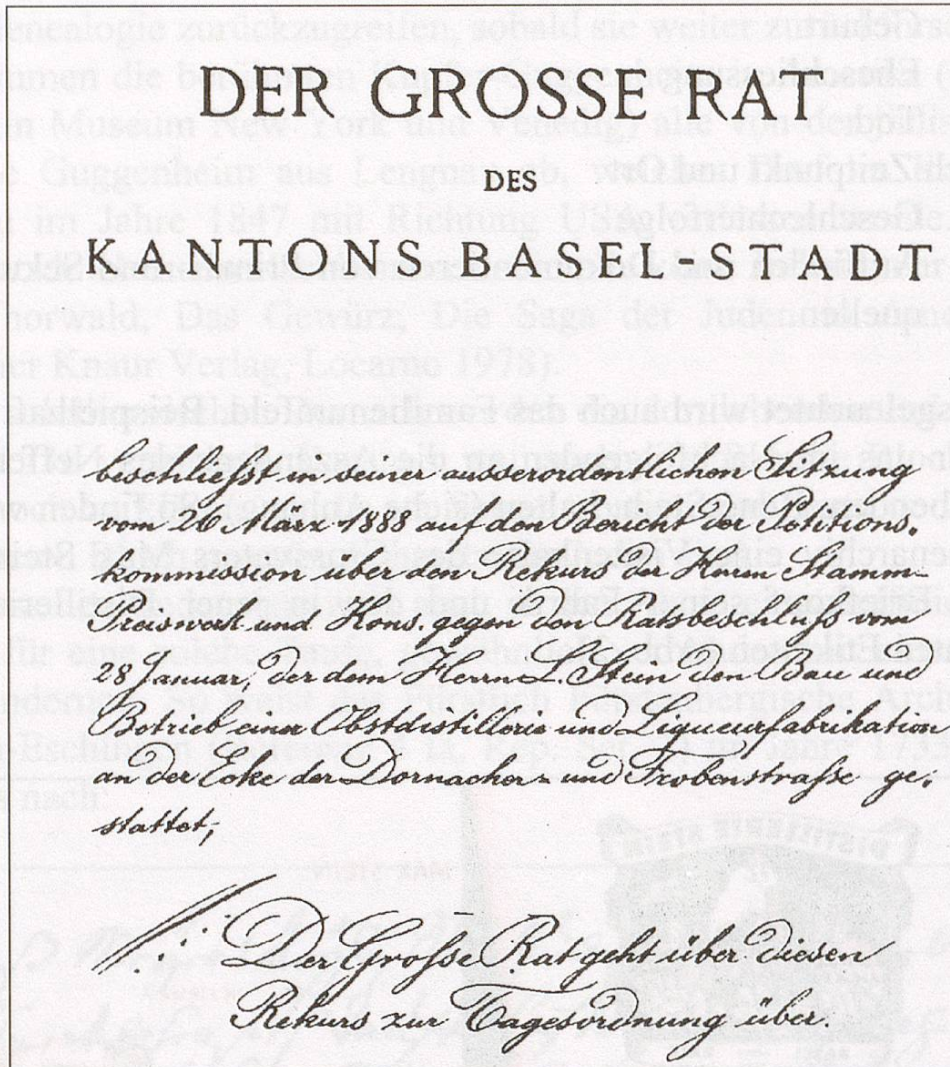 DER GROSSE RAT
DES
KANTONS BASEL STADT
beschließt in seiner ausserordentlichen Sitzung
vom 26. März 1888 auf den Bericht der Petitions-
kommission über den Rekurs der Herrn Stamm-
Preiswerk und Kons. gegen den Ratsbeschluß vom
28 Januar, der dem Herrn L. Stein den Bau und
Betrieb einer Obstdistillerie und Liqueurfabrikation
an der Ecke der Dornacher- und Frobenstraße ge-
stattet;
Der Große Rat geht über diesen
Rekurs zur Tagesordnung über.